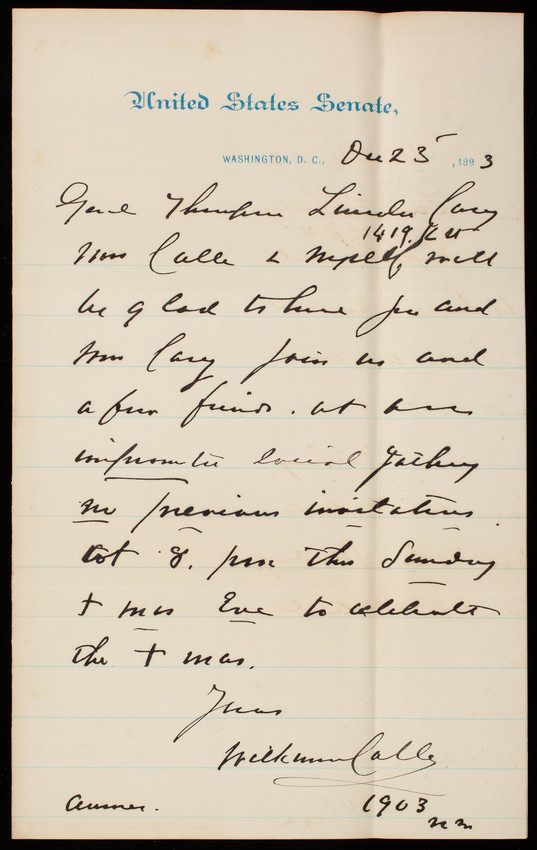 United States Senate,
WASHINGTON, D. C., Dec 23, 1893
Genl Thompson Lincoln Casey
1419. K St
Mrs Call & myself, will
be glad to have you and
Mrs Casey join us and
a few friends. at an
impromtu social gathering
no previous invitations
at 8. pm this Sunday
Xmas Eve to celebrate
the Xmas.
Yours
Wilkinson Call
Answer. 1903